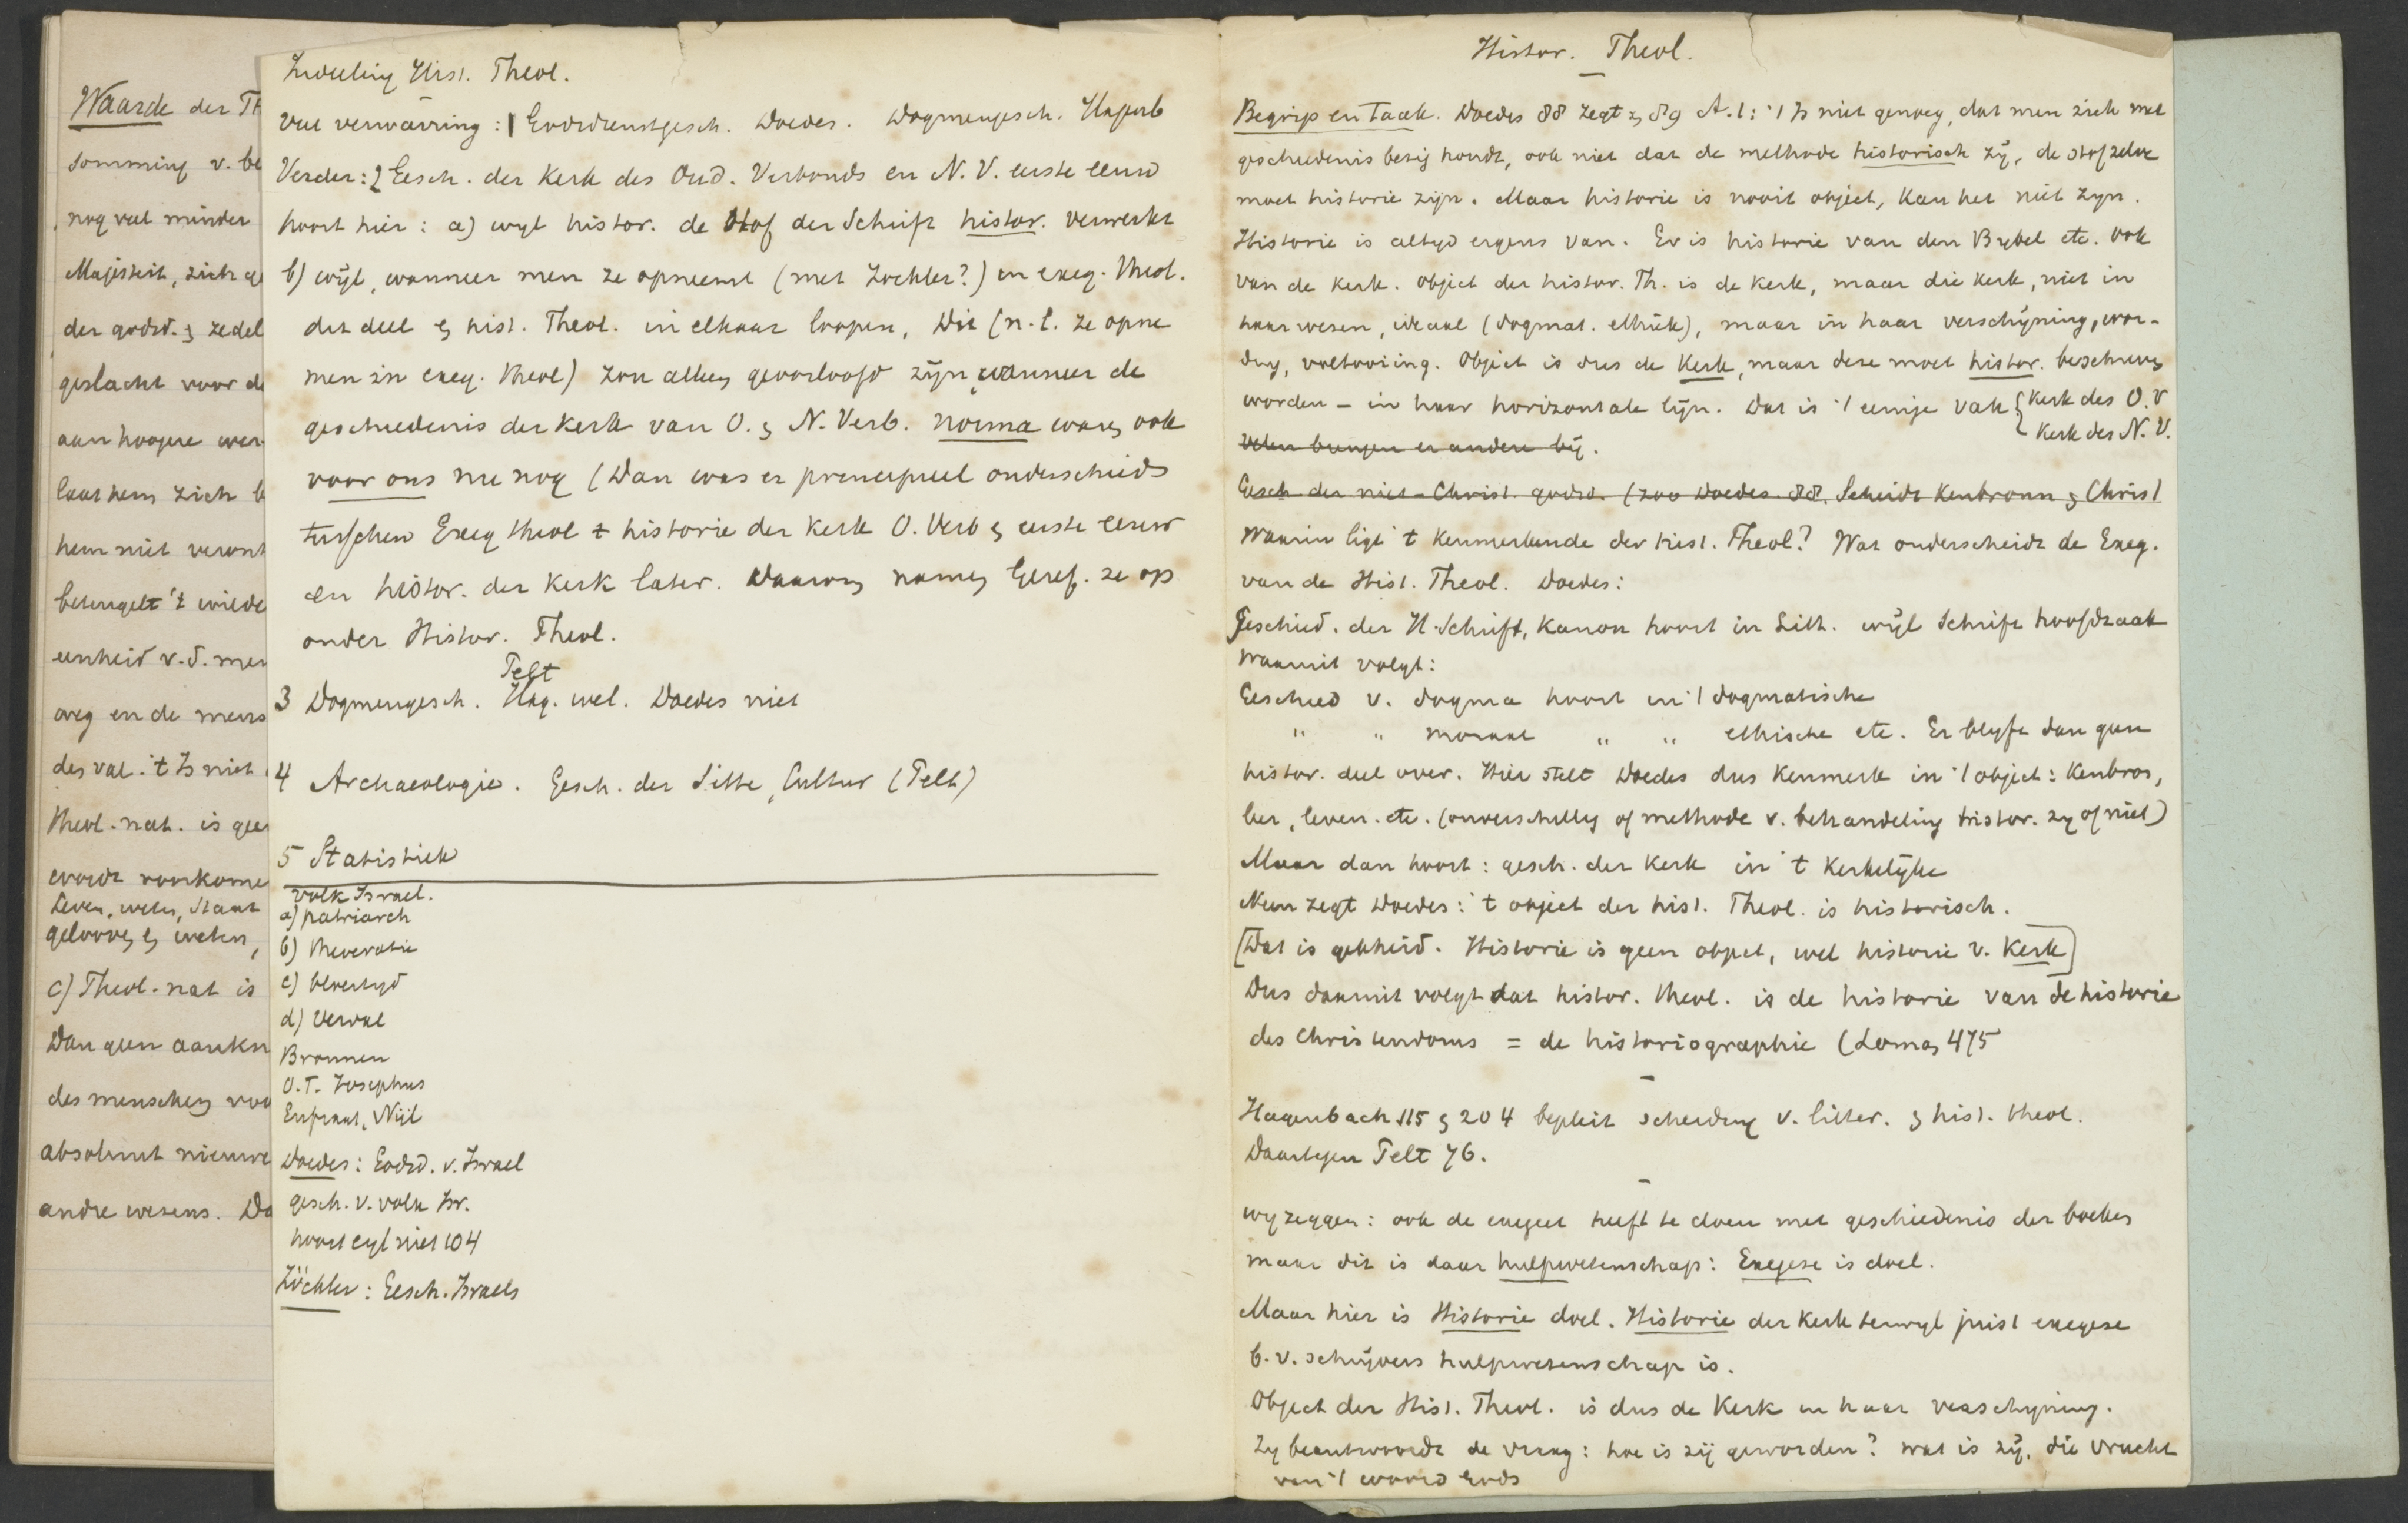 Waarde der Th
somming v. be
nog veel minder
Majesteit, zich
der godsd. & zedel
geslacht voor de
aan hoogere wer
laat hem zich b
hem niet verant
beteugelt 't wilde
eenheid v.d. men
weg en de mens
des val. 't Is niet
Theol. nat. is geen
wordt
Leven, weten, staat
gelooven & weten,
c) Theol. nat is
Dan geen aankn
des menschen voo
absoluut nieuwe
andre wezens. Da
Indeeling Hist. Theol.
Veel verwarring: 1 Godsdienstgesch. Doedes. Dogmengesch. Hagenb
Verder: 2 Gesch. der Kerk des Oud. Verbonds en N. V. eerste eeuw
hoort hier: a) wyl histor. de stof der Schrift histor. verwerkt
b) wijl, wanneer men ze opneemt (met Zöckler?) in exeg. theol.
dit deel & hist. Theol. in elkaar loopen, Dit (n.l. ze opne
men in exeg. theol) zou alleen geoorloofd zijn, wanneer de
geschiedenis der kerk van O. & N. Verb. norma ware, ook
voor ons nu nog (Dan was er principieel onderscheid
tusschen Exeg theol & historie der Kerk O. Verb & eerste eeuw
en histor. der Kerk later. Daarom namen Geref. ze op
onder Histor. Theol.
Pelt
3 Dogmengesch. Hag. wel. Doedes niet
4 Archaeologie. Gesch. der Sitte, Cultur (Pelt)
5 Statistiek
Volk Israel.
a) patriarch
b) theocratie
c) bloeityd
d) Verval
Bronnen
O.T. Josephus
Eufraat, Nijl
Doedes: Godsd. v. Israel
gesch. v. volk Isr.
hoort eigl niet 104
Zöckler: Gesch. Israels
Histor. Theol.
Begrip en Taak. Doedes 88 zegt & 89 A.1: 't Is niet genoeg, dat men zich met
geschiedenis bezig houdt, ook niet dat de methode historisch zij, de stof zelve
moet historie zijn. Maar historie is nooit object, kan het niet zyn.
Historie is altyd ergens van. Er is historie van den Bybel etc. ook
van de kerk. Object der histor. Th. is de kerk, maar die kerk, niet in
haar wezen, ideaal (dogmat. ethiek), maar in haar verschijning, wor-
ding, voltooiing. Object is dus de Kerk, maar deze moet histor. beschreven
worden – in haar horizontale lijn. Dat is 't eenige vak { Kerk des O.V
Kerk des N.V.
Velen brengen er andere bij.
Gesch der niet-Christ. godsd. (zoo Doedes 88. Scheidt Kenbronn & Christ
Waarin ligt 't kenmerkende der hist. Theol? Wat onderscheidt de Exeg.
van de Hist. Theol. Doedes:
Geschied. der H. Schrift, kanon hoort in Litt. wijl Schrift hoofdzaak
Waaruit volgt:
Geschied v. dogma hoort in 't dogmatische
" " moraal " " ethische etc. Er blyft dan geen
histor. deel over. Hier stelt Doedes dus kenmerk in 't object: Kenbron,
leer, leven. etc. (onverschillig of methode v. behandeling histor. zy of niet)
Maar dan hoort: gesch. der Kerk in 't Kerkelijke
Neen zegt Doedes: 't object der hist. Theol. is historisch.
[Dat is gekheid. Historie is geen object, wel historie v. Kerk]
Dus daaruit volgt dat histor. theol. is de historie van de historie
des Christendoms = de historiographie (Loman 475
Hagenbach 115 & 204 bepleit scheiding v. litter. & hist. theol.
Daartegen Pelt 76.
wy zeggen: ook de exegeet heeft te doen met geschiedenis der boeken
maar dit is daar hulpwetenschap: Exegese is doel.
Maar hier is Historie doel. Historie der kerk terwyl juist exegese
b.v. schrijvers hulpwetenschap is.
Object der Hist. Theol. is dus de Kerk in haar verschyning.
Zy beantwoordt de vraag: hoe is zij geworden? wat is zij, die vrucht
van 't woord Gods